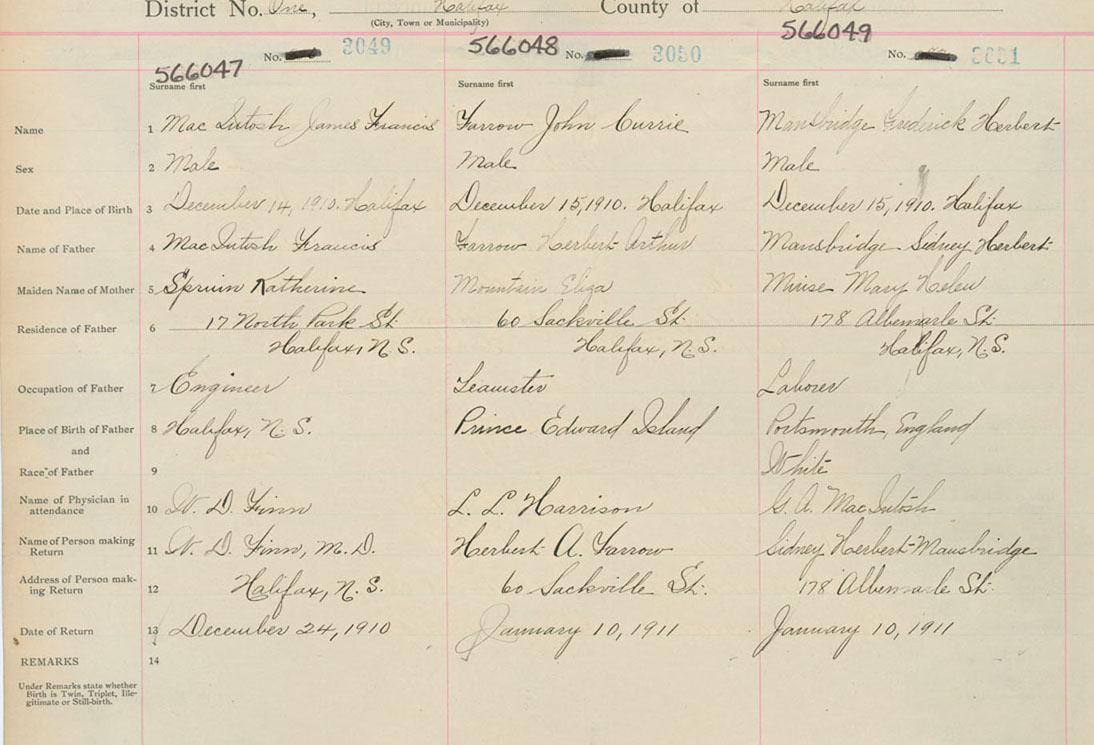 District No. One, Halifax County of Halifax
(City, Town or Municipality)
566047 566048 566049
No. 3049 No. 3050 No.
Surname first Surname first Surname first
Name 1 Mac Intosh James Francis Farrow John Currie Mansbridge Frederick Herbert
Sex 2 Male Male Male
Date and Place of Birth 3 December 14, 1910. Halifax December 15, 1910. Halifax December 15, 1910. Halifax
Name of Father 4 Mac Intosh Francis Farrow Herbert Arthur Mansbridge Sidney Herbert
Maiden Name of Mother 5 Katherine Mountain Eliza Mary Helen
Residence of Father 6 17 North Park St. 60 Sackville St. 178 Albemarle St.
Halifax, N.S. Halifax, N.S. Halifax, N.S.
Occupation of Father 7 Engineer Teamster Laborer
Place of Birth of Father 8 Halifax, N.S. Prince Edward Island Portsmouth, England
and
Race of Father 9 White
Name of Physician in attendance 10 W. D. Finn L. L. Harrison G. A. Mac Intosh
Name of Person making Return 11 W. D. Finn, M.D. Herbert A. Farrow Sidney Herbert Mansbridge
Address of Person making Return 12 Halifax, N.S. 60 Sackville St. 178 Albemarle St.
Date of Return 13 December 24, 1910 January 10, 1911 January 10, 1911
REMARKS 14
Under Remarks state whether
Birth is Twin, Triplet, Ille-
gitimate or Still-birth.